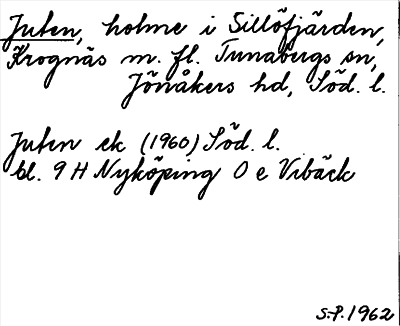 Juten, holme i Sillöfjärden,
Krognäs m. fl. Tunabergs sn,
Jönåkers hd, Söd. l.
Juten ek (1960) Söd. l.
bl. 9 H Nyköping O e Vibäck
S.P. 1962